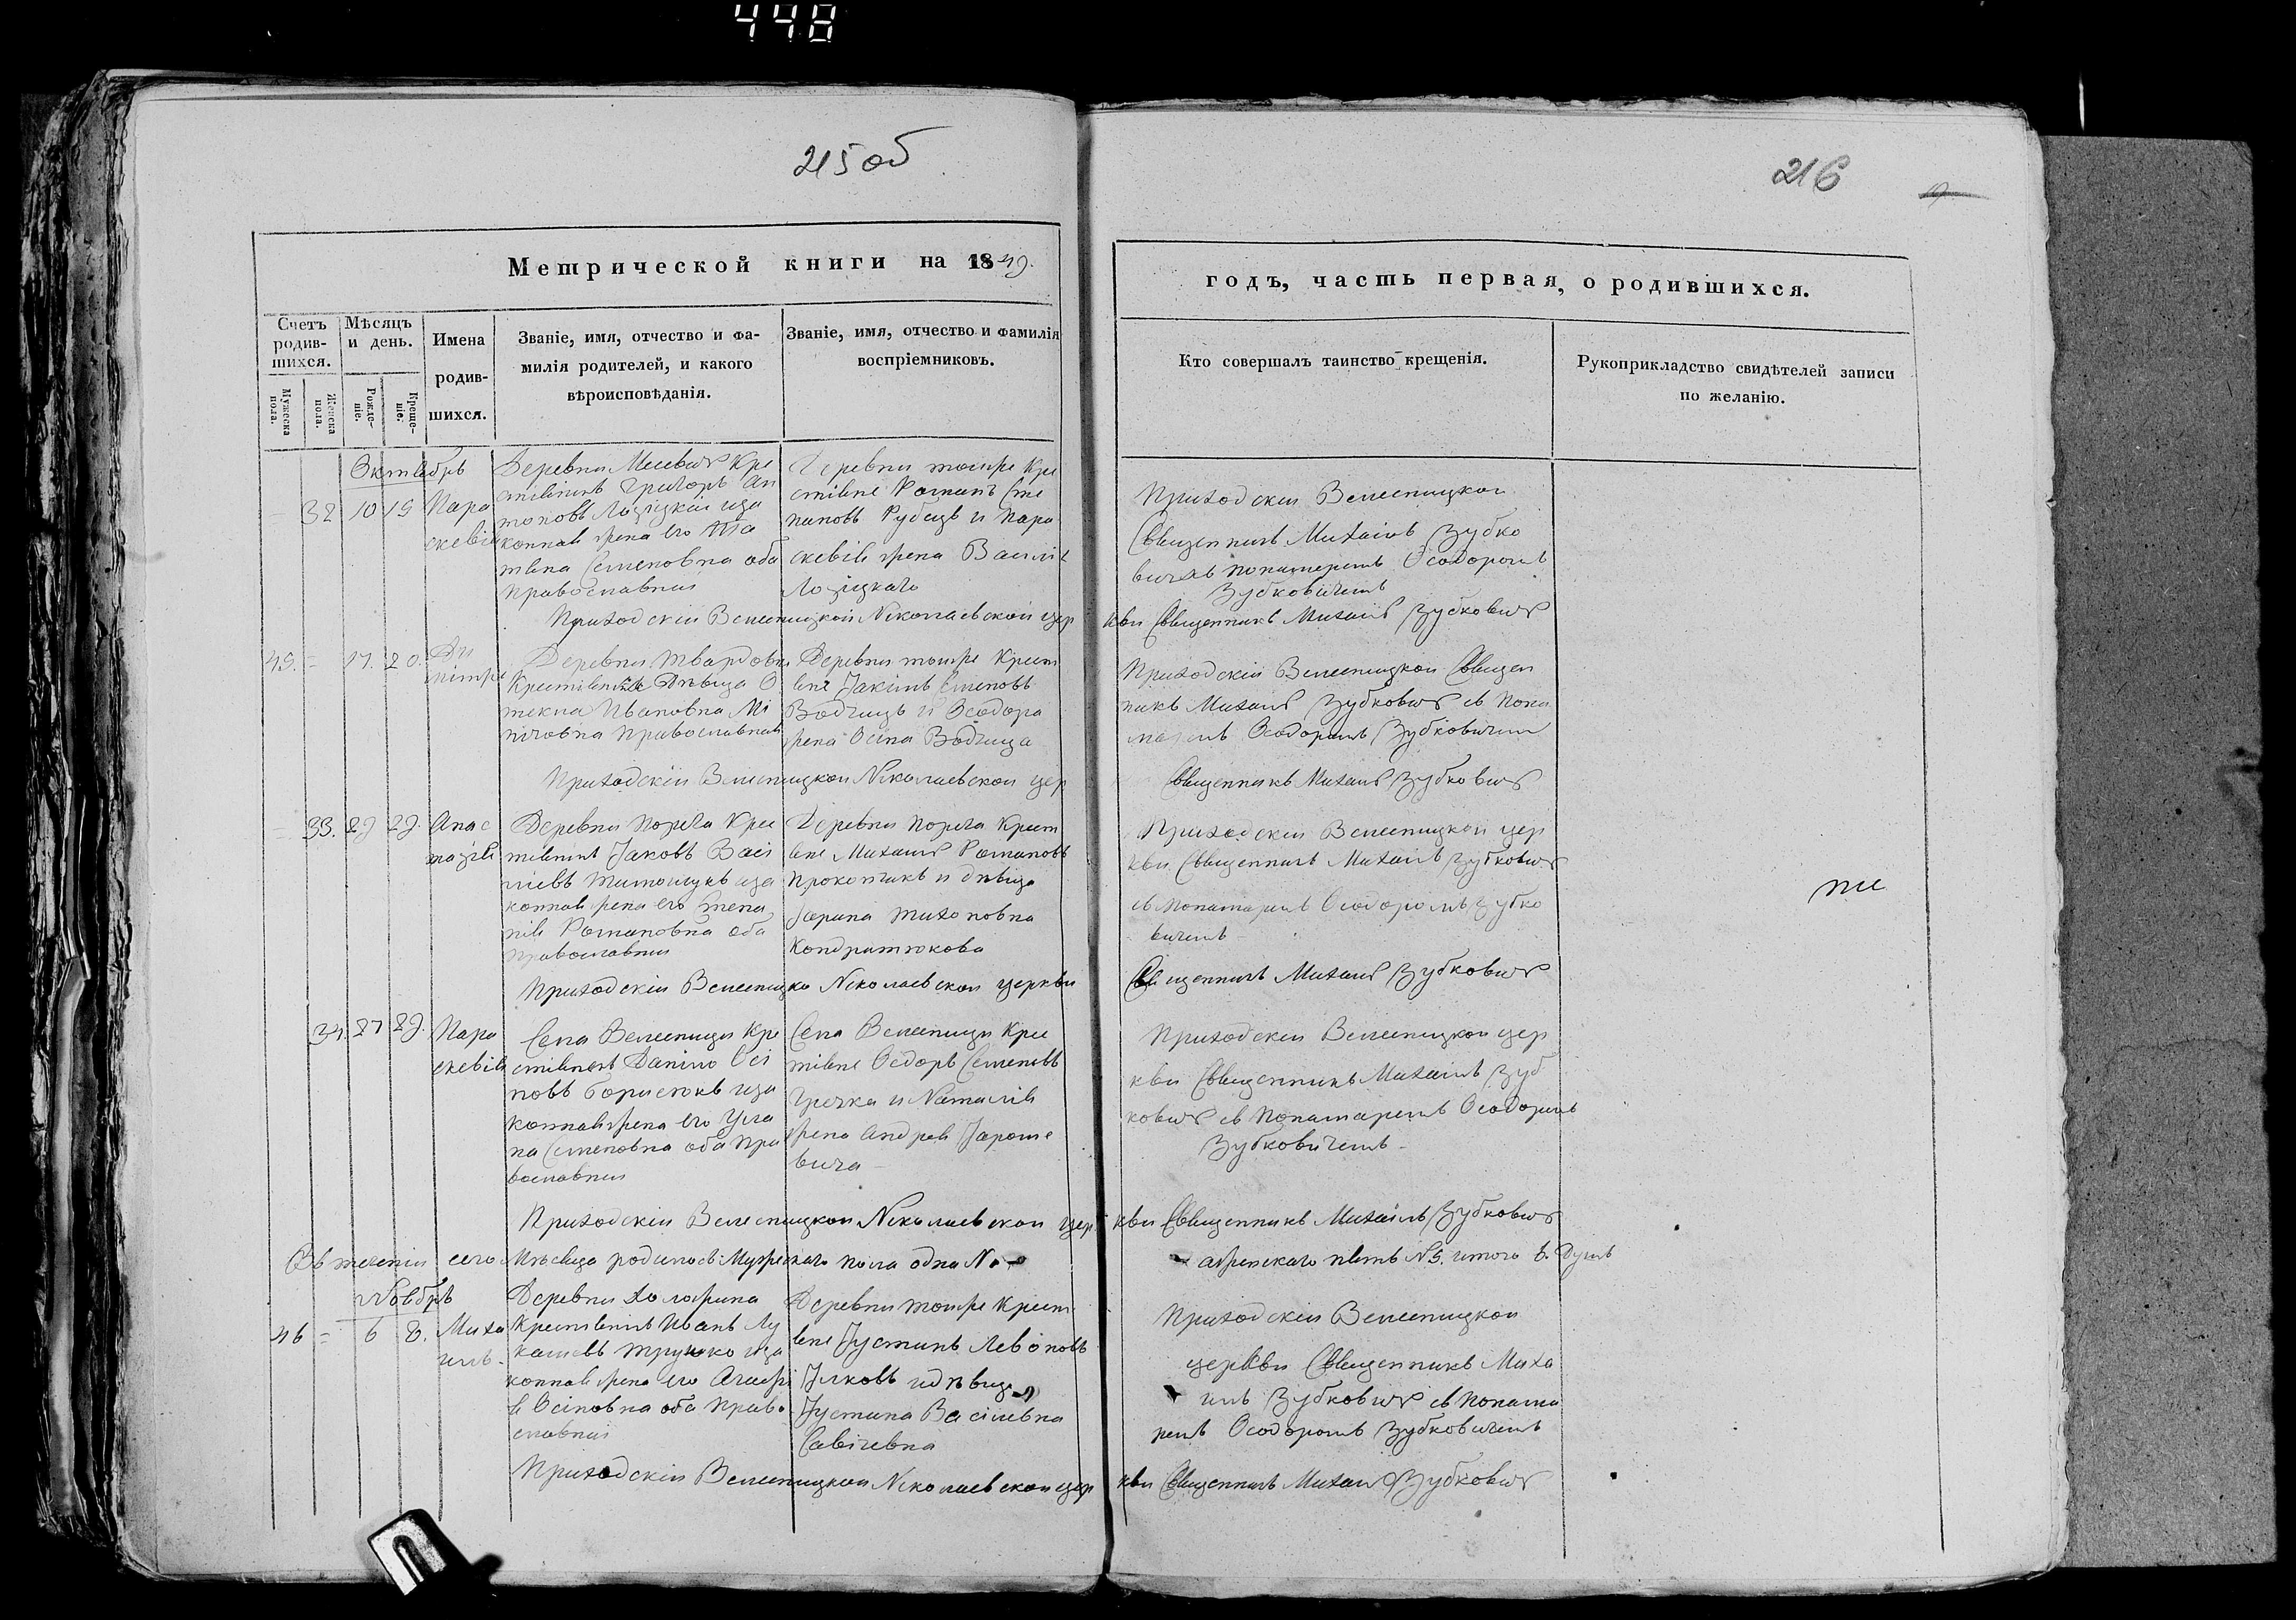 448
215 об
216
Метрической книги на 1849.
годъ, часть первая, о родившихся.
Счетъ родив-шихся.
Мужеска пола.
Женска пола.
Мѣсяцъ и день.
Рожде-ніе.
Креще-ніе.
Имена
родив-
шихся.
Званіе, имя, отчество и фа-
милія родителей, и какого
вѣроисповѣданія.
Званіе, имя, отчество и фамилія
воспріемниковъ.
Кто совершалъ таинство крещенія.
Рукоприкладство свидѣтелей записи
по желанію.
Октябрь
32 10 15 Пара
скевія
Деревни Кре
стянинъ Григоръ Ан
тоновъ иза
конная жена его Та
тяна Семеновна оба
православныи
Деревни тойже Кре
стяне Романъ Сте
пановъ Рубецъ и Пара
скевія жена Василя
Приходскій Велесницкой
Священникъ Михаилъ Зубко
вичъ съ понамаремъ Ѳеодоромъ
Зубковичемъ
Приходскій Велесницкой Николаевской цер
кви Священникъ Михаилъ Зубковичъ
45. = 17. 20. Ди
митрі
Деревни Твардовки
Дѣвица Ѳ
текла Ивановна
православная
Деревни тойже Крест
яне Іакимъ Семеновъ
Водчицъ и Ѳеодора
жена Осипа Водчица
Приходскій Велесницкой Священ
никъ Михаилъ Зубковичъ съ Пона
маремъ Ѳеодоромъ Зубковичемъ
Приходскій Велесницкой Николаевской цер
Священникъ Михаилъ Зубковичъ
= 33. 27 29. Анас
тазія
Деревни Порѣча Крес
тянинъ Іаковъ Васи
ліевъ Тимошукъ иза
конная жена его
Романовна оба
православныи
Деревни Порѣча Крест
яне Михаилъ Романовъ
Прокопчикъ и дѣвица
Іарина Тихоновна
Кондратюкова
Приходскій Велесницкой цер
кви Священникъ Михаилъ Зубковичъ
съ Понамаремъ Ѳеодоромъ Зубко
вичемъ
Приходскій Велесницко Николаевской церкви
Священникъ Михаилъ Зубковичъ
34. 27 29. Пара
скевія
Села Велесници Кре
стянинъ Данило Оси
повъ Борисюкъ иза
конная жена его Уля
на Семеновна оба пра
вославныи
Села Велесници Крес
тяне Ѳедоръ Семеновъ
Гречка и Наталія
жена Андрея Іароше
вича
Приходскій Велесницкой цер
кви Священникъ Михаилъ Зуб
ковичъ съ Понамаремъ Ѳеодоромъ
Зубковичемъ
Приходскій Велесницкой Николаевской цер
кви Священникъ Михаилъ Зубковичъ
Въ теченіи сего Мѣсяца родилось Мужескаго пола
аженскаго пять №5. итого 6. Душъ
Ноябрь
46 = 6 8. Миха
илъ
Деревни Холожина
Крестянинъ Иванъ Лу
кашевъ Трушко иза
конная жена его Агафі
я Осиповна оба право
славныи
Деревни тойже Крест
яне Іустинъ Левоновъ
Ілковъ и дѣвица
Іустина Василевна
Савичевна
Приходскій Велесницкой
церкви Священникъ Миха
илъ Зубковичъ съ Понама
ремъ Ѳеодоромъ Зубковичемъ
Приходскій Велесницкой Николаевской цер
кви Священникъ Михаилъ Зубковичъ